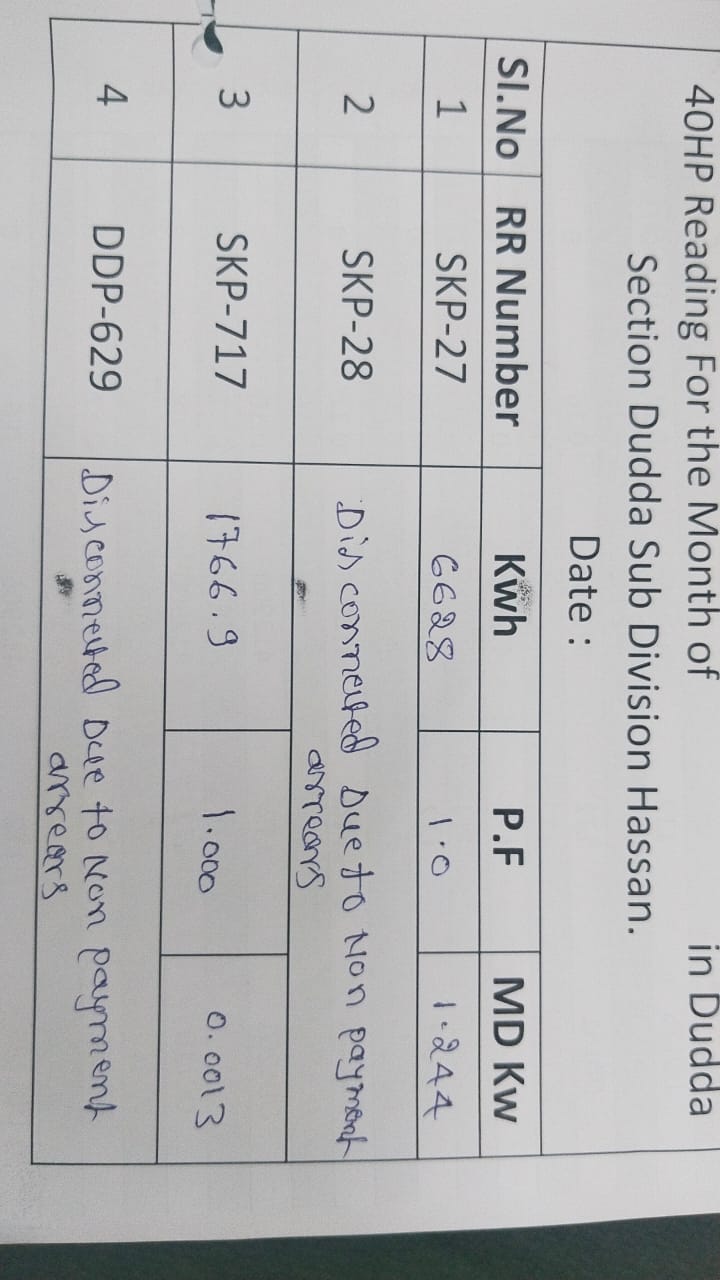 40HP Reading For the Month of in Dudda
Section Dudda Sub Division Hassan.
Date :
Sl.No RR Number Kwh P.F MD Kw
1 SKP-27 6628 1.0 1.244
2 SKP-28 Disconnected Due to Non payment
arrears
3 SKP-717 1766.9 1.000 0.0013
4 DDP-629 Disconnected Due to Non payment
arrears